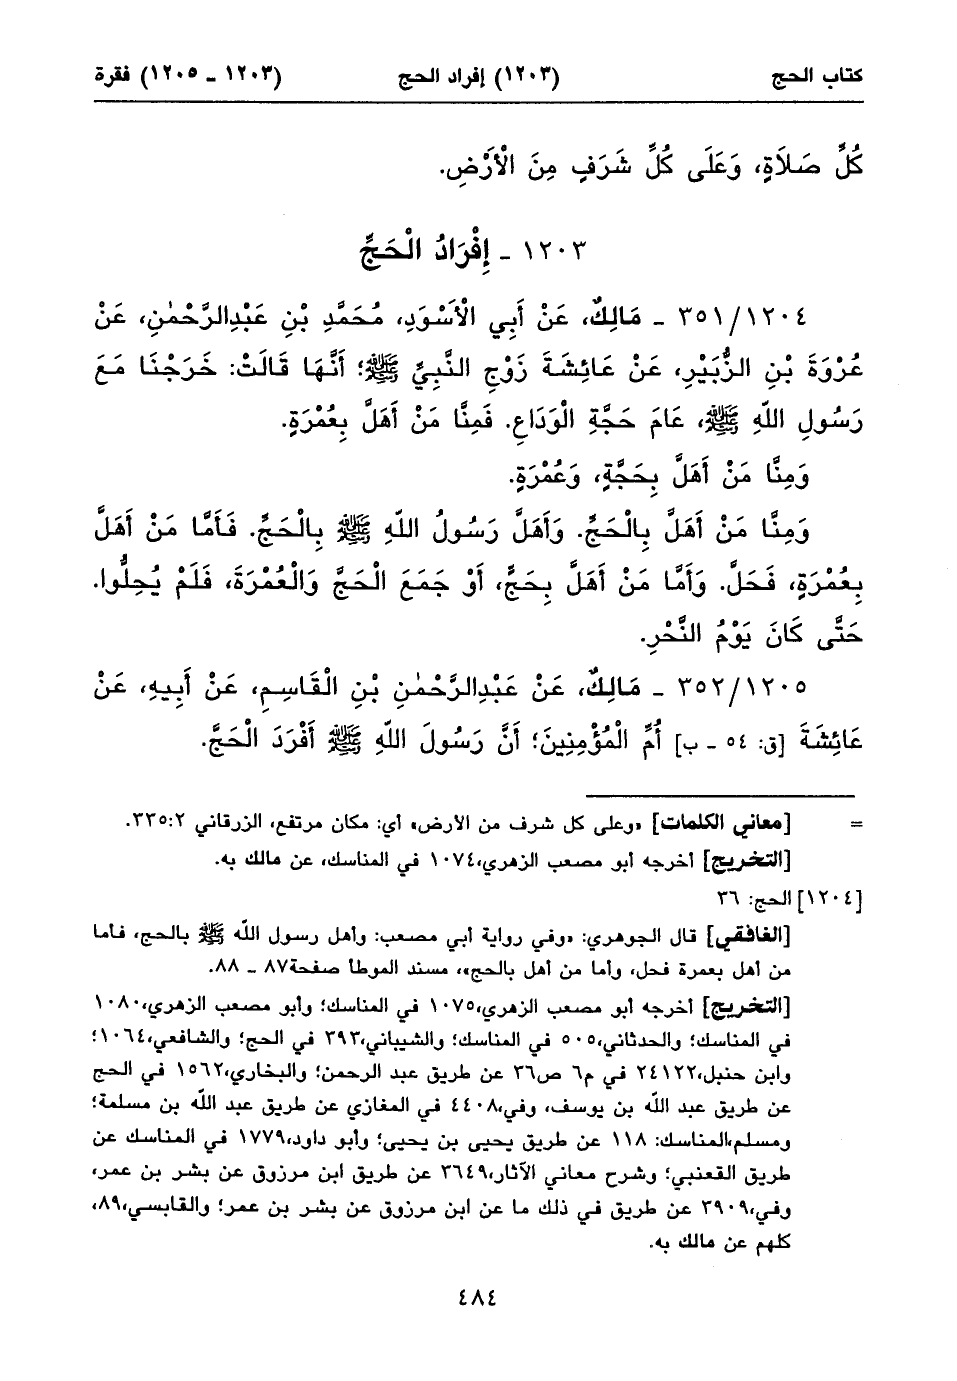 كتاب الحج (١٢٠٣) إفراد الحج (١٢٠٣ - ١٢٠٥) فقرة
كُلِّ صَلاَةٍ، وَعَلَى كُلِّ شَرَفٍ مِنَ الْأَرْضِ.
١٢٠٣ - إِفْرَادُ الْحَجِّ
٣٥١/١٢٠٤ - مَالِكٌ، عَنْ أَبِي الْأَسْوَدِ، مُحَمَّدِ بْنِ عَبْدِالرَّحْمٰنِ، عَنْ
عُرْوَةَ بْنِ الزُّبَيْرِ، عَنْ عَائِشَةَ زَوْجِ النَّبِيِّ ﷺ؛ أَنَّهَا قَالَتْ: خَرَجْنَا مَعَ
رَسُولِ اللّهِ ﷺ، عَامَ حَجَّةِ الْوَدَاعِ. فَمِنَّا مَنْ أَهَلَّ بِعُمْرَةٍ.
وَمِنَّا مَنْ أَهَلَّ بِحَجَّةٍ، وَعُمْرَةٍ.
وَمِنَّا مَنْ أَهَلَّ بِالْحَجِّ. وَأَهَلَّ رَسُولُ اللّهِ ﷺ بِالْحَجِّ. فَأَمَّا مَنْ أَهَلَّ
بِعُمْرَةٍ، فَحَلَّ. وَأَمَّا مَنْ أَهَلَّ بِحَجٍّ، أَوْ جَمَعَ الْحَجَّ وَالْعُمْرَةَ، فَلَمْ يُحِلُّوا.
حَتَّى كَانَ يَوْمُ النَّحْرِ.
٣٥٢/١٢٠٥ - مَالِكٌ، عَنْ عَبْدِالرَّحْمٰنِ بْنِ الْقَاسِمِ، عَنْ أَبِيهِ، عَنْ
عَائِشَةَ [ق: ٥٤ - ب] أُمِّ الْمُؤْمِنِينَ؛ أَنَّ رَسُولَ اللّهِ ﷺ أَفْرَدَ الْحَجَّ.
= [معاني الكلمات] «وعلى كل شرف من الأرض» أي: مكان مرتفع، الزرقاني ٣٣٥:٢.
[التخريج] أخرجه أبو مصعب الزهري، ١٠٧٤ في المناسك، عن مالك به.
[١٢٠٤] الحج: ٣٦
[الغافقي] قال الجوهري: «وفي رواية أبي مصعب: وأهل رسول اللّه ﷺ بالحج، فأما
من أهل بعمرة فحل، وأما من أهل بالحج»، مسند الموطأ صفحة ٨٧ - ٨٨.
[التخريج] أخرجه أبو مصعب الزهري، ١٠٧٥ في المناسك؛ وأبو مصعب الزهري، ١٠٨٠
في المناسك؛ والحدثاني، ٥٠٥ في المناسك؛ والشيباني، ٣٩٣ في الحج؛ والشافعي، ١٠٦٤؛
وابن حنبل، ٢٤١٢٢ في م٦ ص٣٦ عن طريق عبد الرحمن؛ والبخاري، ١٥٦٢ في الحج
عن طريق عبد اللّه بن يوسف، وفي، ٤٤٠٨ في المغازي عن طريق عبد اللّه بن مسلمة؛
ومسلم، المناسك: ١١٨ عن طريق يحيى بن يحيى؛ وأبو داود، ١٧٧٩ في المناسك عن
طريق القعنبي؛ وشرح معاني الآثار، ٣٦٤٩ عن طريق ابن مرزوق عن بشر بن عمر،
وفي، ٣٩٠٩ عن طريق في ذلك ما عن ابن مرزوق عن بشر بن عمر؛ والقابسي، ٨٩،
كلهم عن مالك به.
٤٨٤